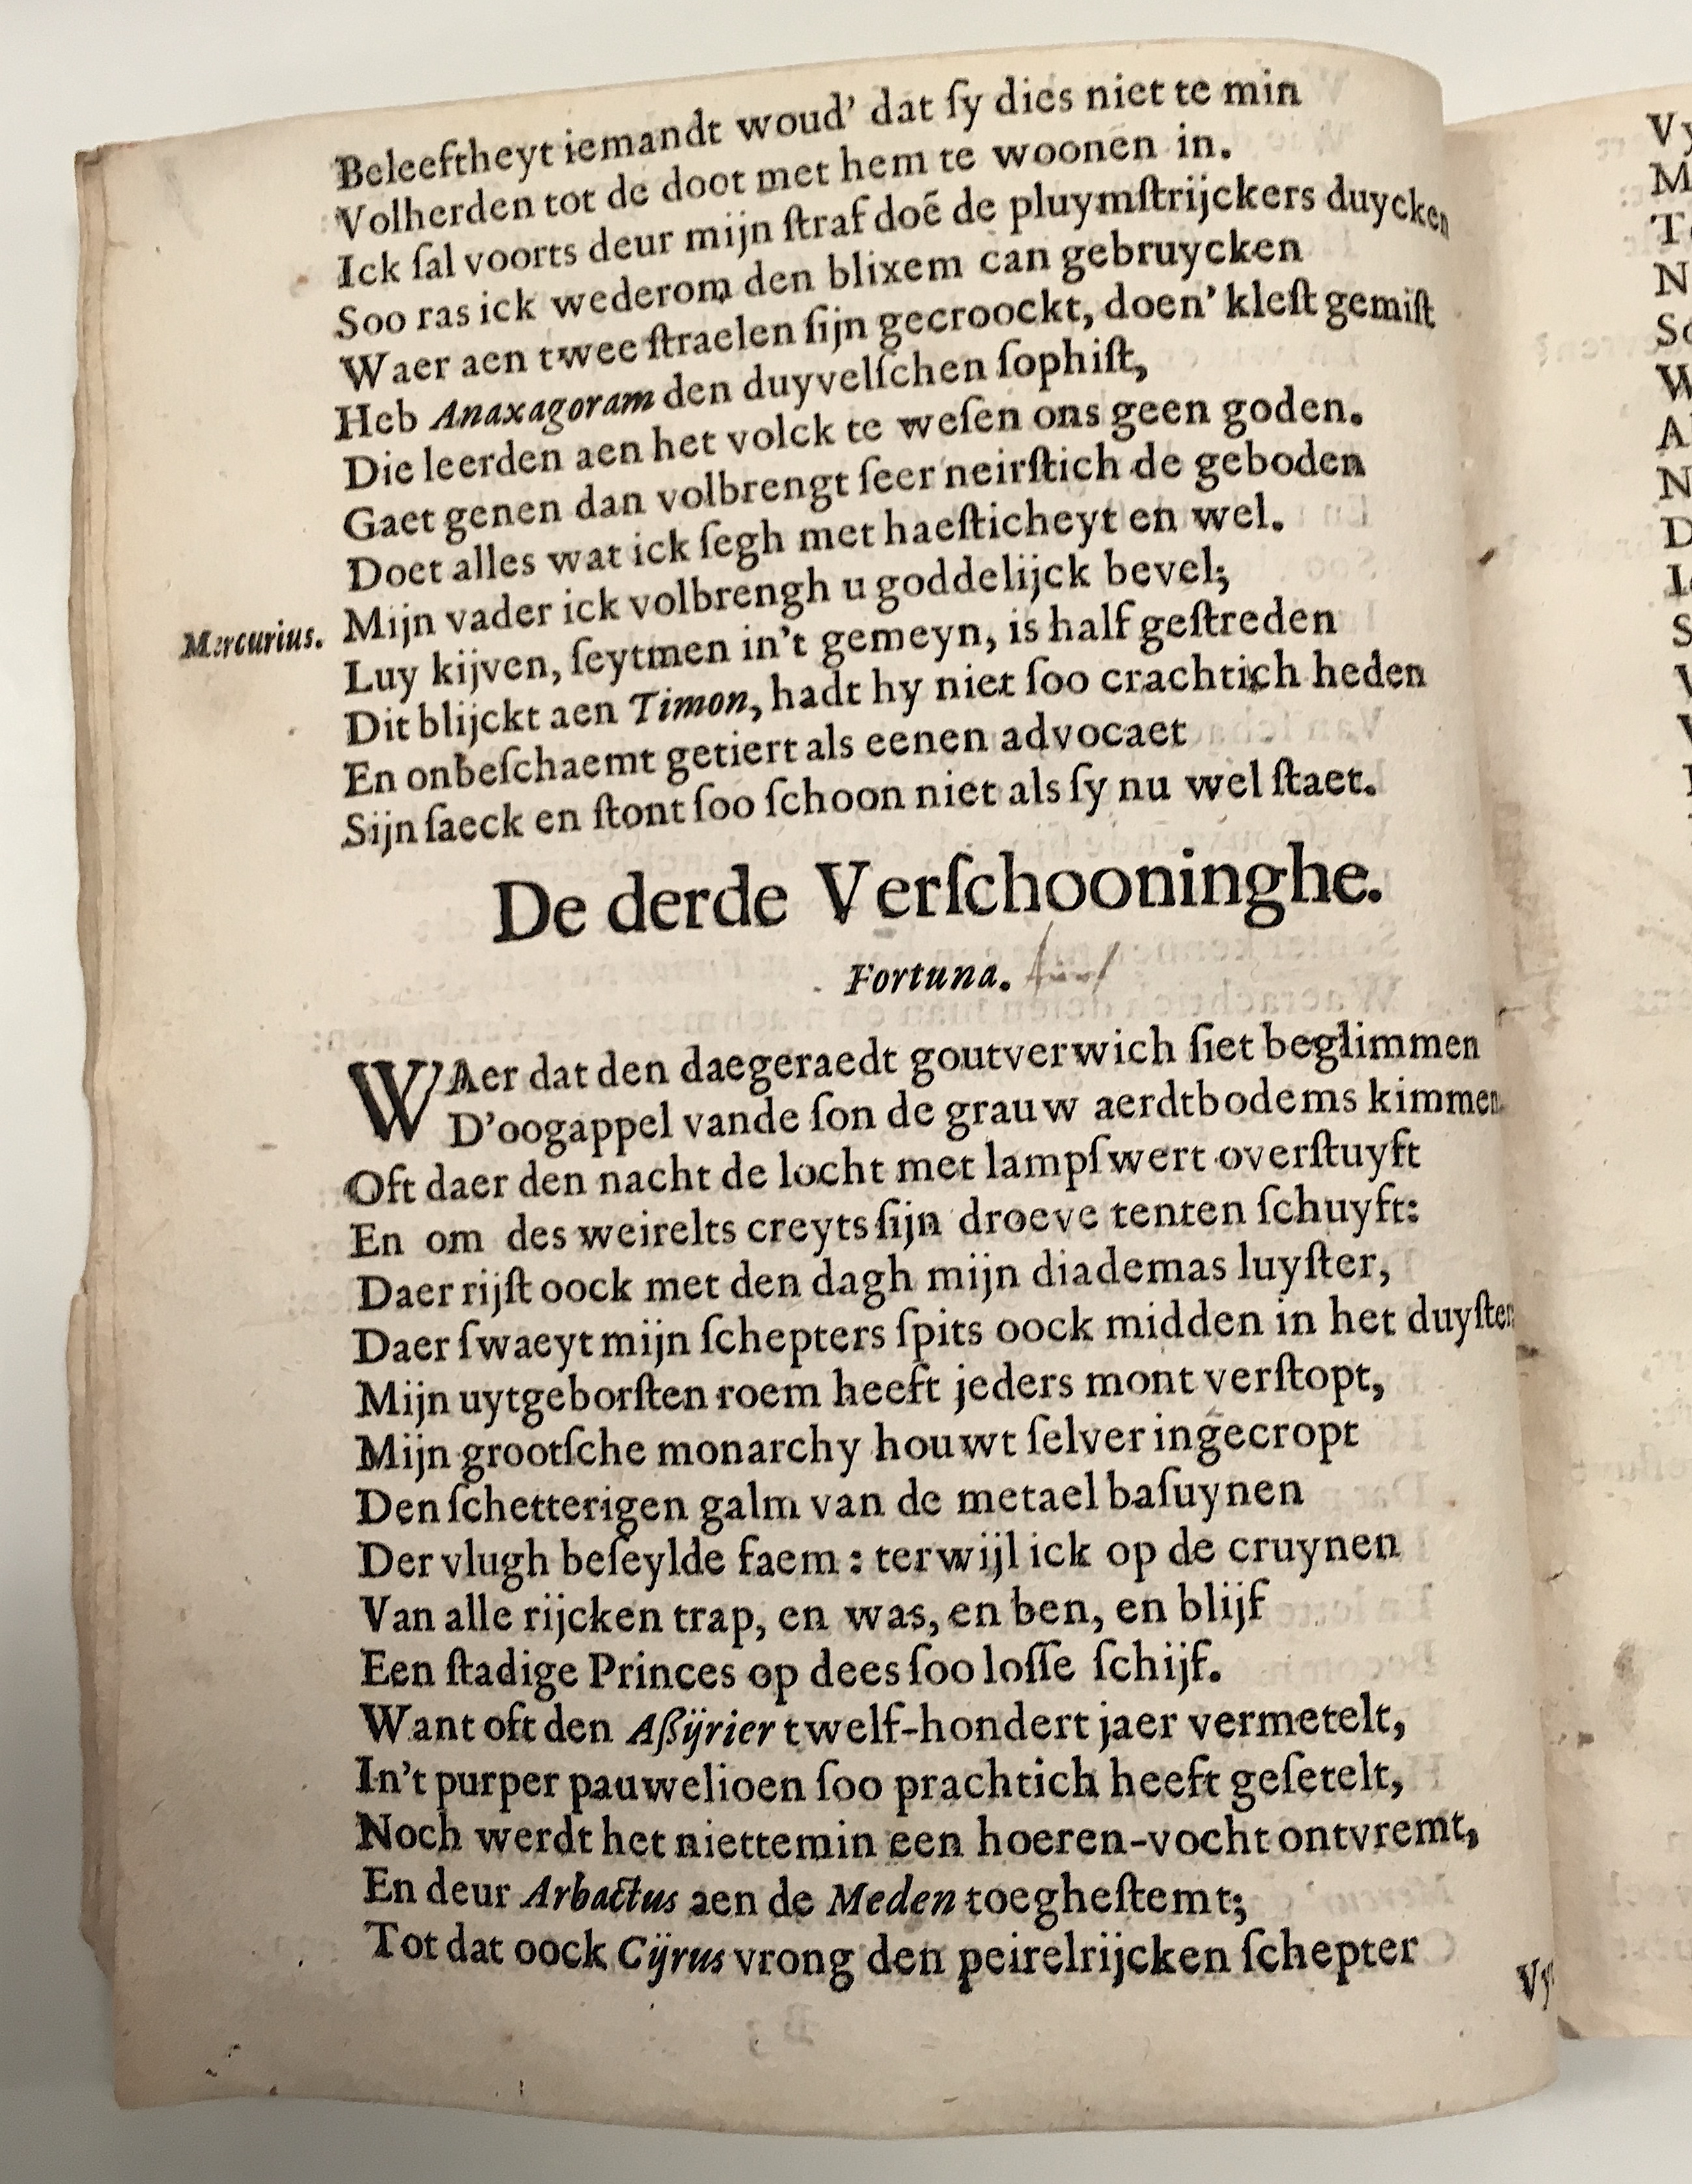 Beleeftheyt iemandt woud' dat ſy dies niet te min
Volherden tot de doot met hem te woonen in.
Ick ſal voorts deur mijn ſtraf doẽ de pluymſtrijckers duycken
Soo ras ick wederom den blixem can gebruycken
Waer aen twee ſtraelen ſijn gecroockt, doen' kleſt gemiſt
Heb Anaxagoram den duyvelſchen ſophiſt,
Die leerden aen het volck te weſen ons geen goden.
Gaet genen dan volbrengt ſeer neirſtich de geboden
Doet alles wat ick ſegh met haeſticheyt en wel.
Mercurius. Mijn vader ick volbrengh u goddelijck bevel;
Luy kijven, ſeytmen in't gemeyn, is half geſtreden
Dit blijckt aen Timon, hadt hy niet ſoo crachtich heden
En onbeſchaemt getiert als eenen advocaet
Sijn ſaeck en ſtont ſoo ſchoon niet als ſy nu wel ſtaet.
De derde Verſchooninghe.
Fortuna.
WAer dat den daegeraedt goutverwich ſiet beglimmen
D'oogappel vande ſon de grauw aerdtbodems kimmen.
Oft daer den nacht de locht met lampſwert overſtuyft
En om des weirelts creyts ſijn droeve tenten ſchuyft:
Daer rijſt oock met den dagh mijn diademas luyſter,
Daer ſwaeyt mijn ſchepters ſpits oock midden in het duyſter.
Mijn uytgeborſten roem heeft jeders mont verſtopt,
Mijn grootſche monarchy houwt ſelver ingecropt
Den ſchetterigen galm van de metael baſuynen
Der vlugh beſeylde faem: terwijl ick op de cruynen
Van alle rijcken trap, en was, en ben, en blijf
Een ſtadige Princes op dees ſoo loſſe ſchijf.
Want oft den Aßÿrier twelf-hondert jaer vermetelt,
In't purper pauwelioen ſoo prachtich heeft geſetelt,
Noch werdt het niettemin een hoeren-vocht ontvremt,
En deur Arbactus aen de Meden toegheſtemt;
Tot dat oock Cÿrus vrong den peirelrijcken ſchepter
Vy
M
N
W
N
D
S